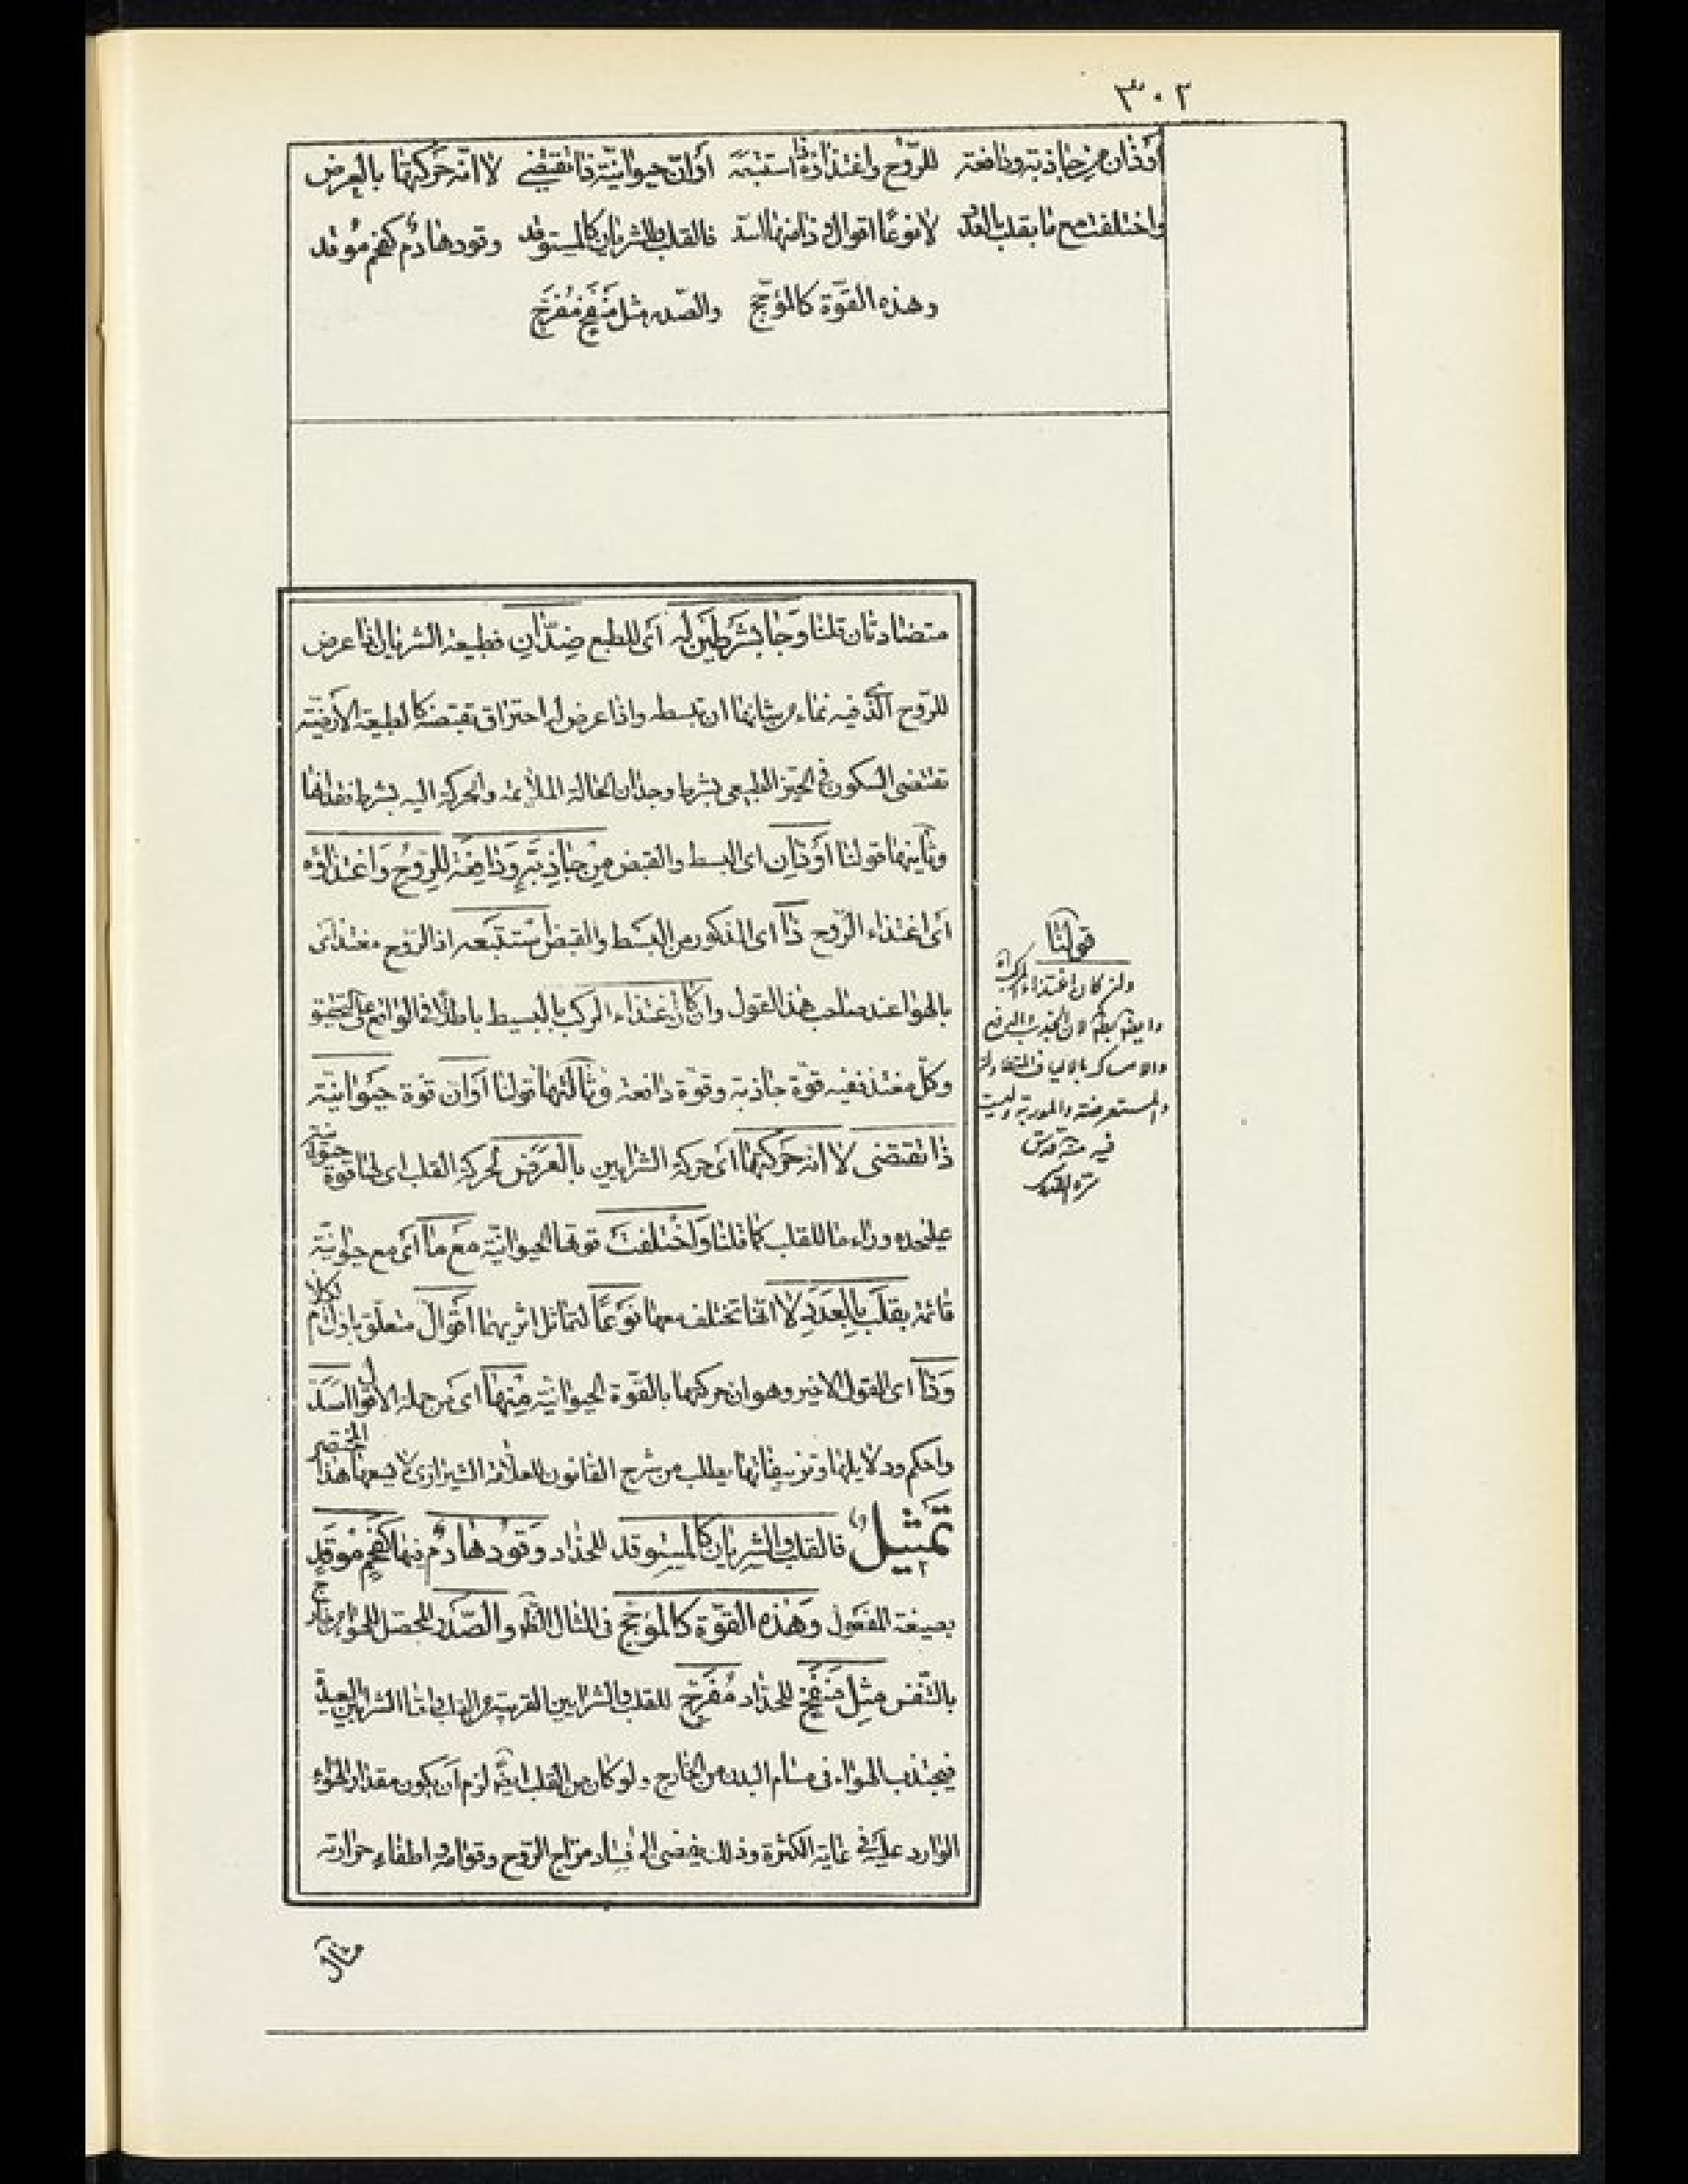 ٣٠٢
أو ذان من جاذبة ودافعة للرّوح واغتذاؤه ذا استتبعه أو انّ حيوانيّة ذا تقتضي لا انّه حركتها بالعرض
واختلفت مع ما بقلب بالعدد لا نوعًا اقوال وذا منها اسدّ فالقلب والشريان كالمستوقد وقودها دم كفحم موقد
وهذه القوّة كالمؤجّج والصّدر مثل منفخ مفرّج
متضادتان قلنا وَجَا بشَرطَين له اى للطبع ضِدّانِ فطبيعة الشريان اذا عرض
للرّوح الّذى فيه نماء من شانها ان تبسطه واذا عرض له احتراق تقبضه كالطبيعة الأرضيّة
تقتضى السكون فى الحيّز الطبيعى بشرط وجدان الحالة الملائمة والحركة اليه بشرط فقدانها
وثانيها قولنا اَوذانِ اى البسط والقبض مِن جاذِبَةٍ ودَافِعَة للرّوحِ وَاغتذاؤه
اى اغتذاء الرّوح ذا اى المذكور من البسط والقبض استتبَعه اذ الرّوح مغتذ اى
بالهوا عند صاحب هذا القول وان كان اغتذاء المركب بالبسيط باطلًا فى الواقع على التحقيق
وكلّ مغتذ ففيه قوّة جاذبة وقوّة دافعة وثالثها قولنا اَو انّ قوة حيَوانيّة
ذا تقتضى لا انه حَركتها اى حركة الشرايين بالعَرَض لحركة القلب اى لها قوة حيوانيّة
عليحده وراء ما للقلب كما قلنا وَاختلفت قوتها الحيوانيّة مَعَ ما اى مع حيوانيّة
قائمة بقلبٍ بالعَدَدِ لا انها تختلف معها نَوعًا لتماثل اثريهما اقوالٌ متعلق باوّل الكلام
وَذا اى القول الاخير وهو ان حركتها بالقوّة الحيوانيّة مِنها اى من جملة الأقوال اسَدّ
واحكم ودلايلها وتزييفاتها يطلب من شرح القانون للعلّامة الشيرازى لا يسعها هذا المختصر
تَمثيلٌ فالقلب والشريان كالمستوقد للحدّاد وقودها دمٌ فيها كفحمٍ موقَدٍ
بصيغة المفعول وَهذه القوّة كالمؤجّج فى المثال الظر والصّدر المحصّل للهواء من خارج
بالتّنفس مثل مَنفخ للحدّاد مُفرّج للقلب والشرايين القريبة من القلب وامّا الشرايين البعيدة
فيجتذب الهواء فى مسام البدن من الخارج ولو كان من القلب ايضًا لزم ان يكون مقدار الهواء
الوارد عليه فى غاية الكثرة وذلك يفضى الى فساد مزاج الرّوح وقوامه واطفاء حرارته
قولنا
وان كان اغتذاء المركب اه
والامساك بالالياف
والمستعرضة والموربة وليست
قدس
سره
مثال